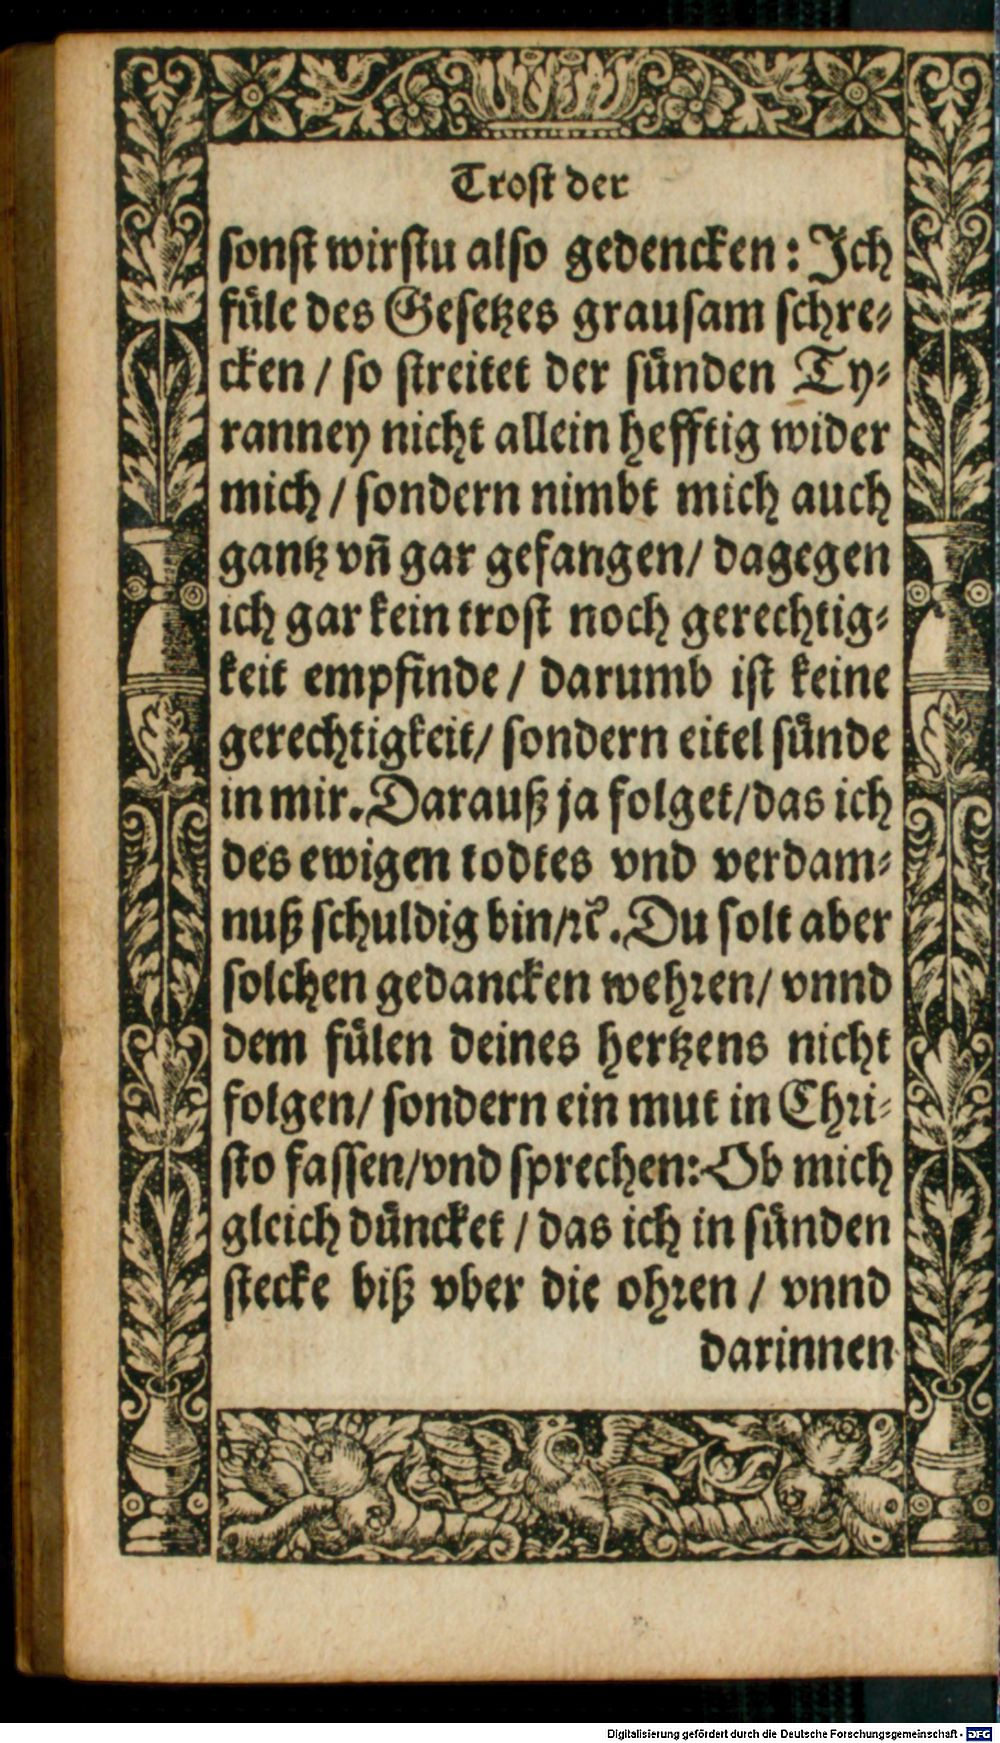 Trost der
sonst wirstu also gedencken: Ich
füle des Gesetzes grausam schre-
cken / so streitet der sünden Ty-
ranney nicht allein hefftig wider
mich / sondern nimbt mich auch
gantz vñ gar gefangen / dagegen
ich gar kein trost noch gerechtig-
keit empfinde / darumb ist keine
gerechtigkeit / sondern eitel sünde
in mir. Darauß ja folget / das ich
des ewigen todtes vnd verdam-
nuß schuldig bin / ꝛc. Du solt aber
solchen gedancken wehren / vnnd
dem fülen deines hertzens nicht
folgen / sondern ein mut in Chri-
sto fassen / vnd sprechen: Ob mich
gleich düncket / das ich in sünden
stecke biß vber die ohren / vnnd
darinnen
Digitalisierung gefördert durch die Deutsche Forschungsgemeinschaft - DFG